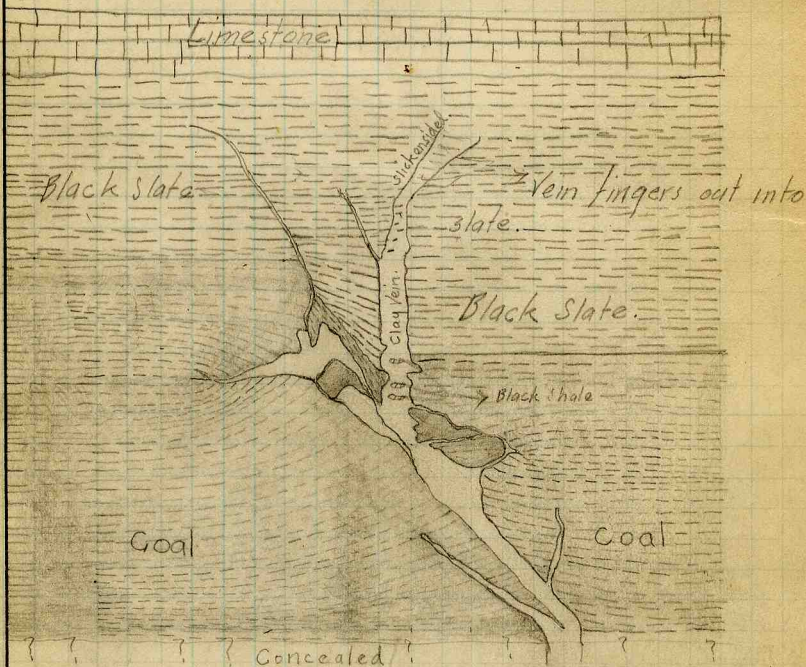 Limestone
Slickensided
Black Slate
Vein fingers out into
slate.
Clay Vein.
Black Slate.
Black Shale
Coal
Coal
? ? ? ? ? ? ? ?
Concealed